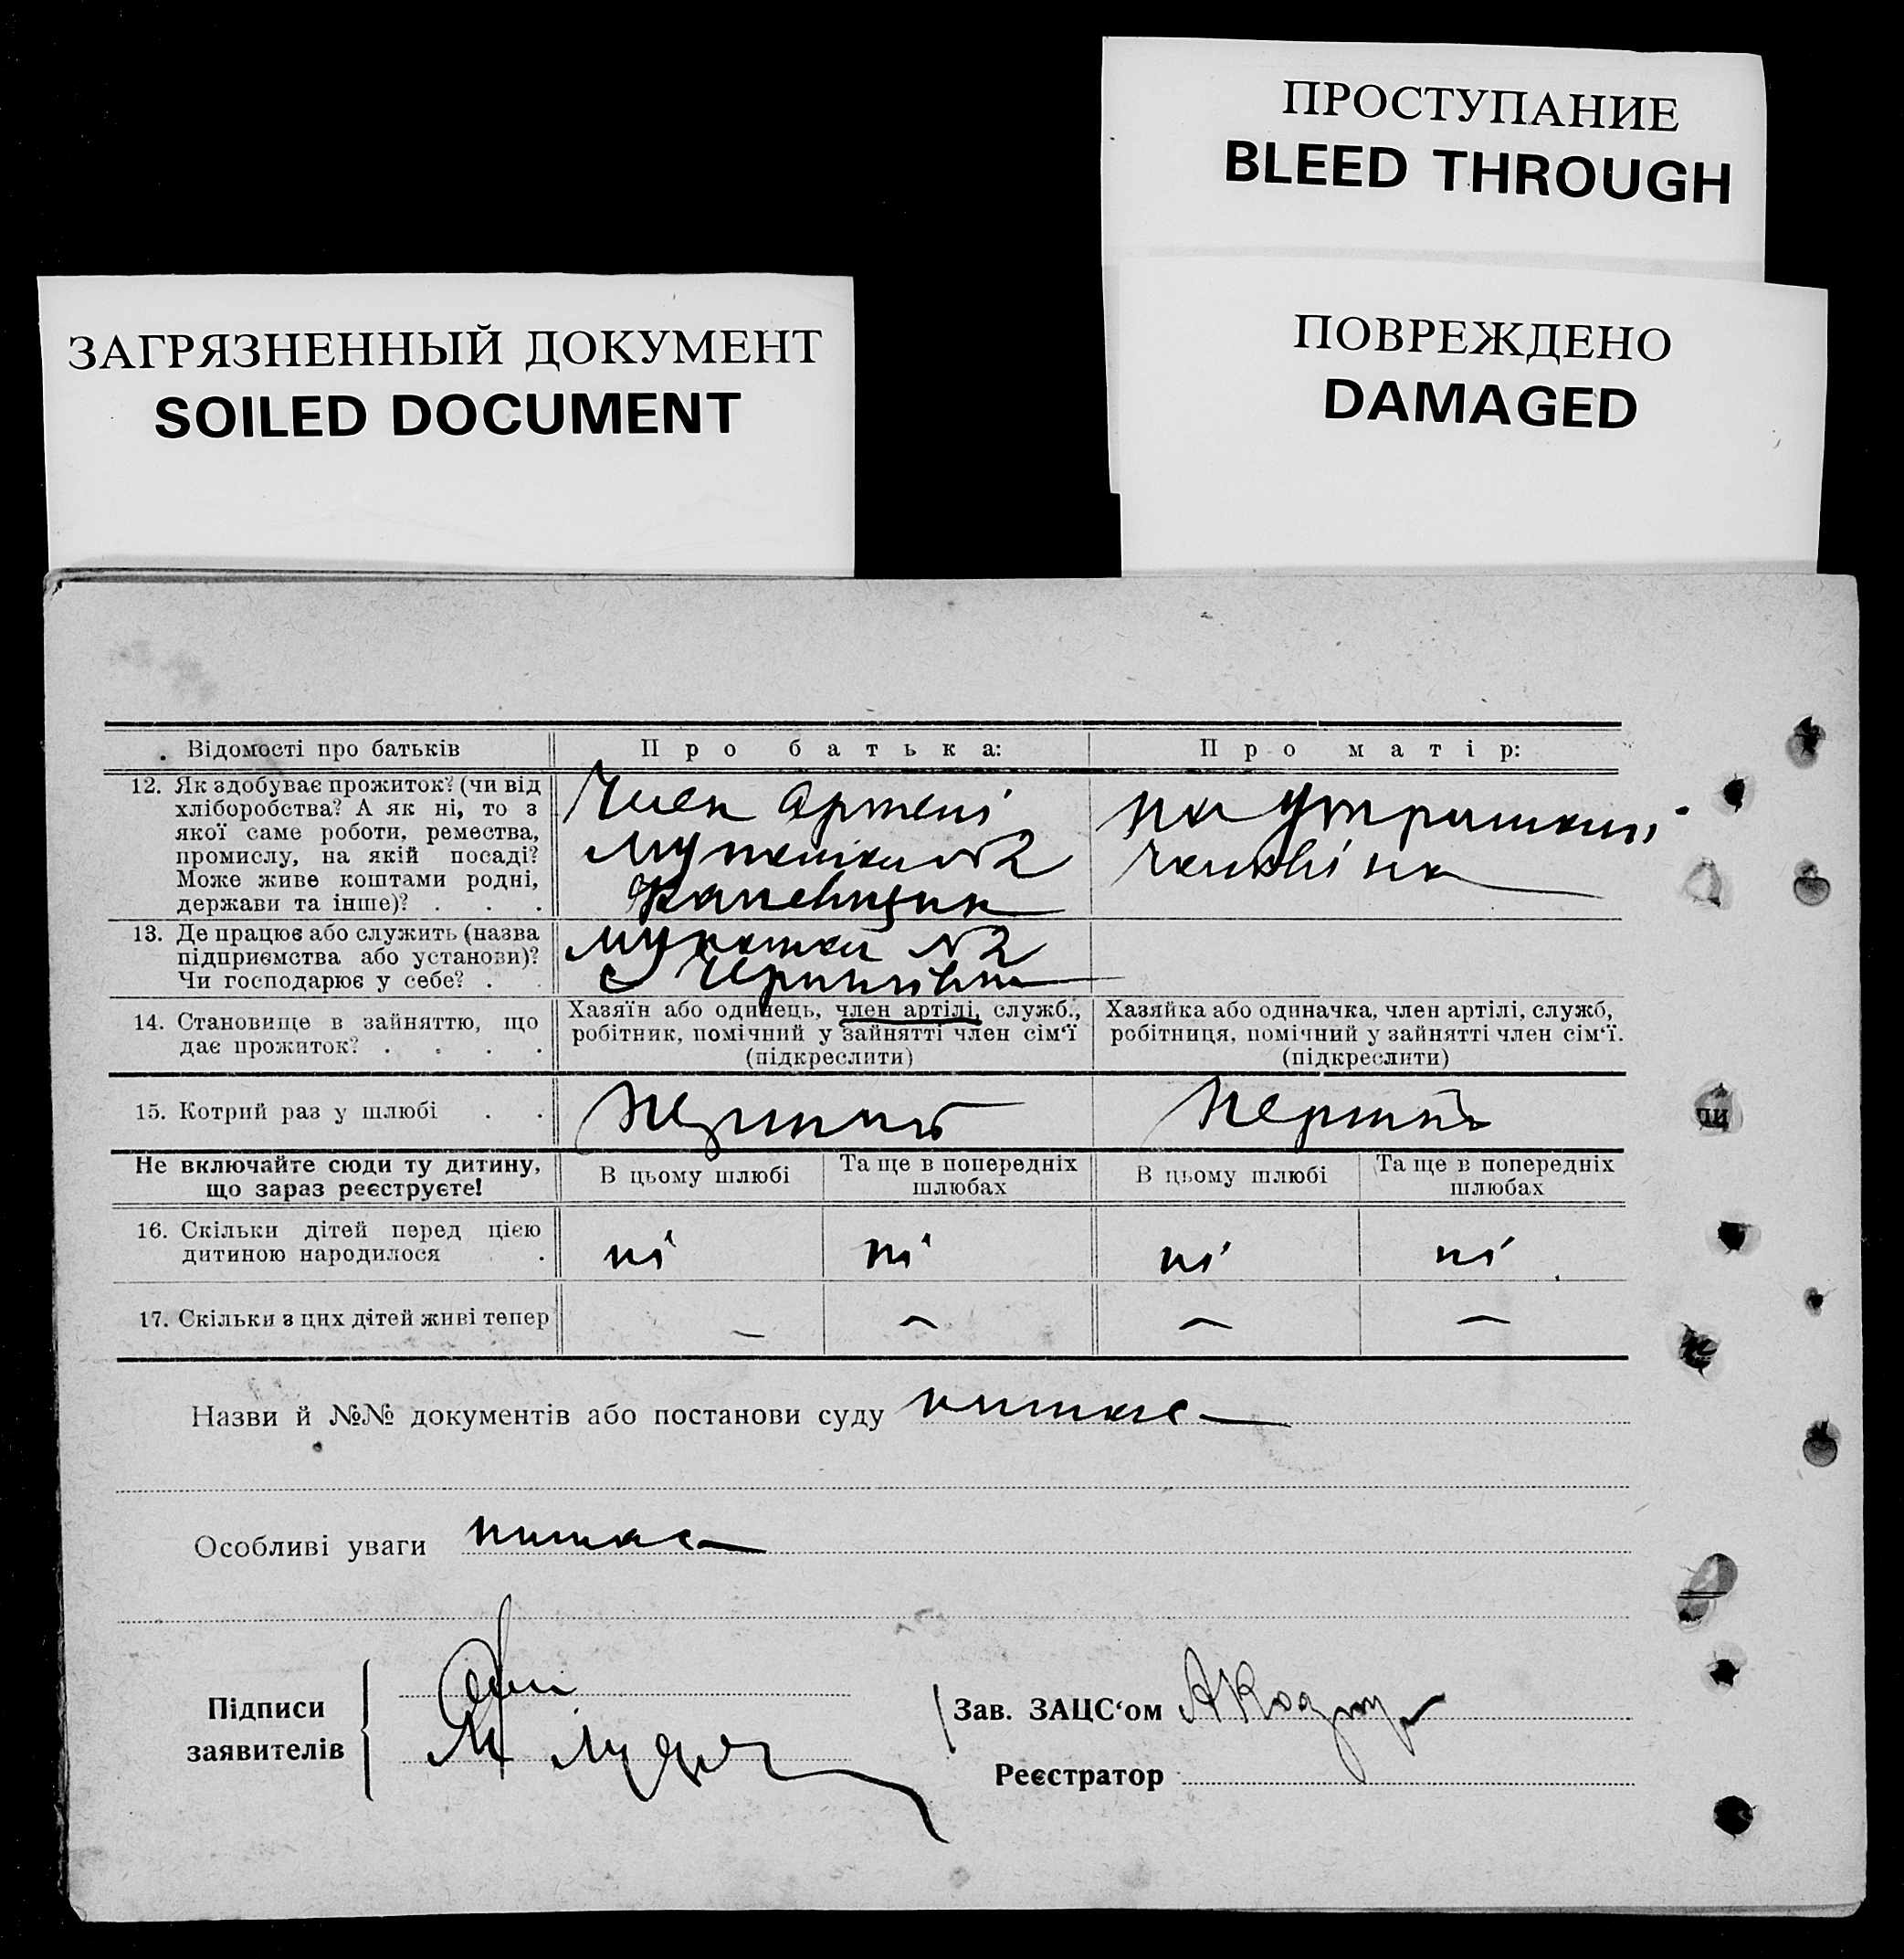 ПРОСТУПАНИЕ
BLEED THROUGH
ЗАГРЯЗНЕННЫЙ ДОКУМЕНТ
SOILED DOCUMENT
ПОВРЕЖДЕНО
DAMAGED
Відомості про батьків
Про батька:
Про матір:
12. Як здобуває прожиток? (чи від
хліборобства? А як ні, то з
якої саме роботи, ремества,
промислу, на якій посаді?
Може живе коштами родні,
держави та інше)? . . .
Член артелі
№2
на утриманні
чоловіка
13. Де працює або служить (назва
підприємства або установи)?
Чи господарює у себе? .
№2
14. Становище в зайняттю, що
дає прожиток? . . . .
Хазяїн або одинець, член артілі, служб.,
робітник, помічний у зайнятті член сім‘ї
(підкреслити)
Хазяйка або одиначка, член артілі, служб,
робітниця, помічний у зайнятті член сім‘ї.
(підкреслити)
15. Котрий раз у шлюбі . .
перший
перший
Не включайте сюди ту дитину,
що зараз реєструєте!
В цьому шлюбі
Та ще в попередніх
шлюбах
В цьому шлюбі
Та ще в попередніх
шлюбах
16. Скільки дітей перед цією
дитиною народилося .
ні
ні
ні
ні
17. Скільки з цих дітей живі тепер
—
—
—
—
Назви й №№ документів або постанови суду немає
Особливі уваги немає
Підписи
заявителів
Зав. ЗАЦС‘ом
Реєстратор